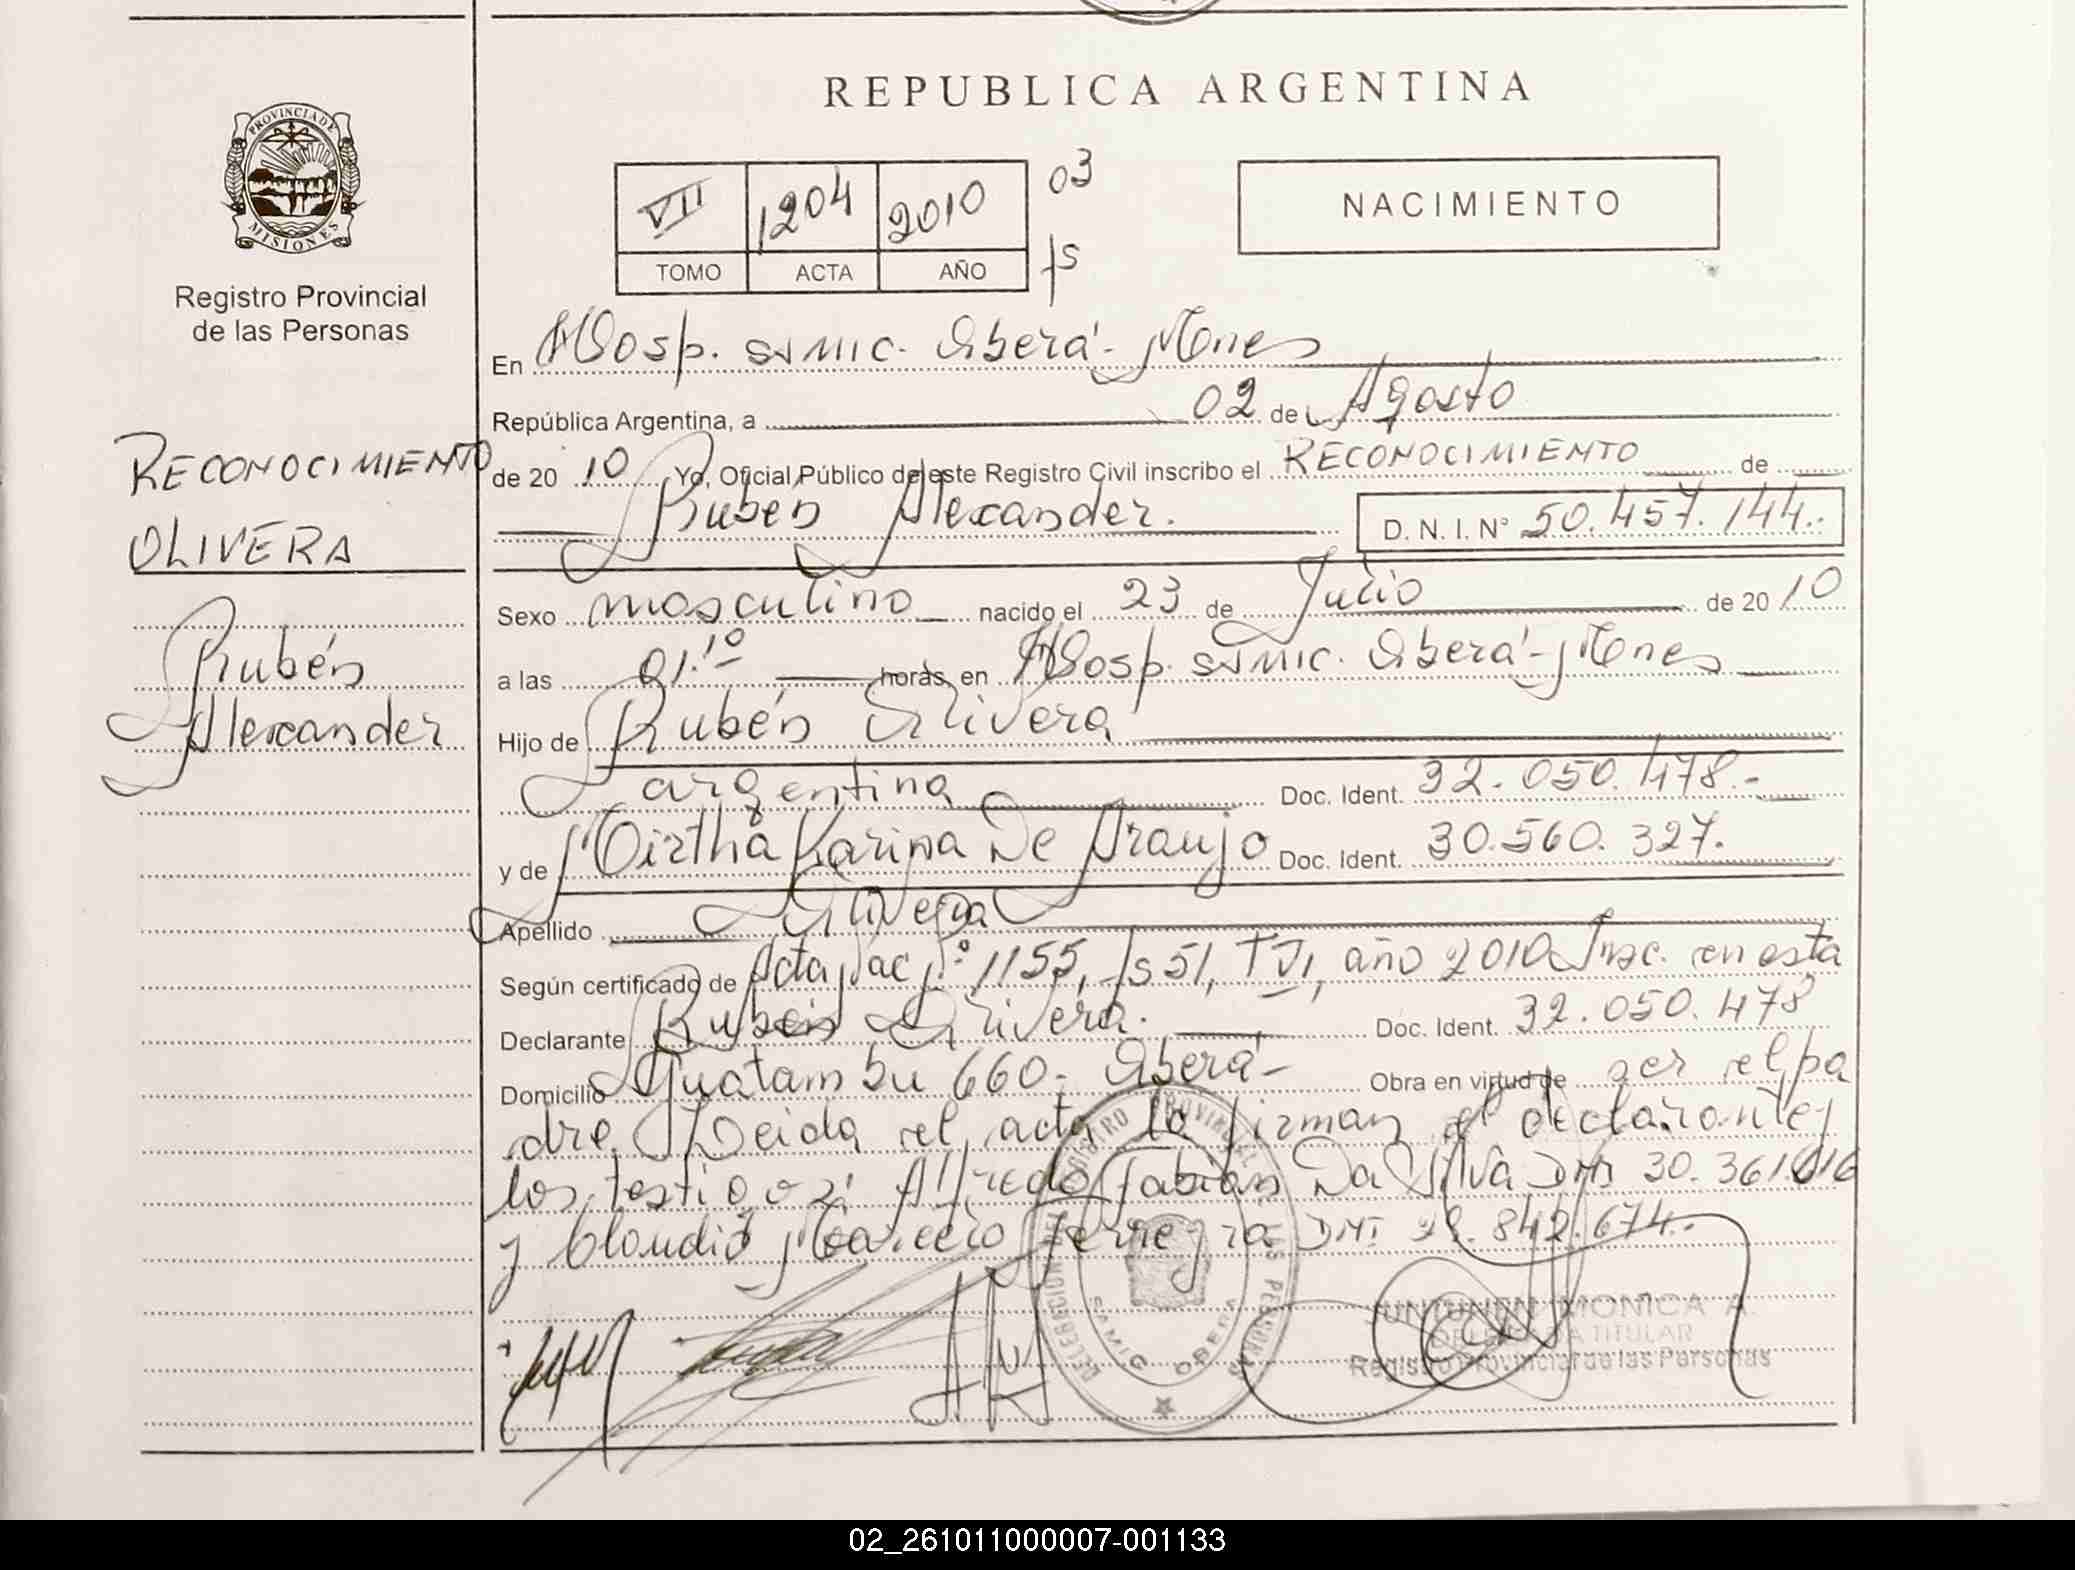 REPUBLICA ARGENTINA
PROVINCIA DE
MISIONES
Registro Provincial
de las Personas
VII 1204 2010 03
TOMO ACTA AÑO fs
NACIMIENTO
En Hosp. SAMIC. Oberá - Mnes
República Argentina, a 02 de Agosto
de 20 10 Yo, Oficial Público de este Registro Civil inscribo el RECONOCIMIENTO de
Rubén Alexander. D. N. I. N° 50.457.144.
RECONOCIMIENTO
OLIVERA
Rubén
Alexander
Sexo masculino nacido el 23 de Julio de 20 10
a las 01.10 horas, en Hosp. SAMIC. Oberá - Mnes
Hijo de Rubén Olivera
argentina Doc. Ident. 32.050.478.-
y de Mirtha Karina De Araujo Doc. Ident. 30.560.327.
Apellido Olivera
Según certificado de Acta Nac N° 1155, fs 51, T VI, año 2010 Insc. en esta
Declarante Rubén Olivera. Doc. Ident. 32.050.478
Domicilio Guatambu 660 - Oberá - Obra en virtud de ser el pa
dre. Leida el acta la firman el declarante y
los testigos: Alfredo Fabián Da Silva DNI 30.361.616
y Claudio Marcelo Ferreyra DNI 842.674.
DELEGACION DEL REGISTRO PROVINCIAL DE LAS PERSONAS
SAMIC OBERA
JUNTUNEN MONICA A.
DELEGADA TITULAR
Registro Provincial de las Personas
02_261011000007-001133